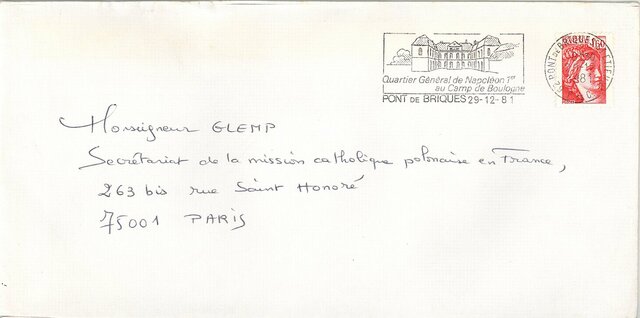 Quartier Général de Napoléon 1er
au Camp de Boulogne
PONT DE BRIQUES 29-12-81
Monseigneur GLEMP
Secrétariat de la mission catholique polonaise en France,
263 bis rue Saint Honoré
75001 PARIS